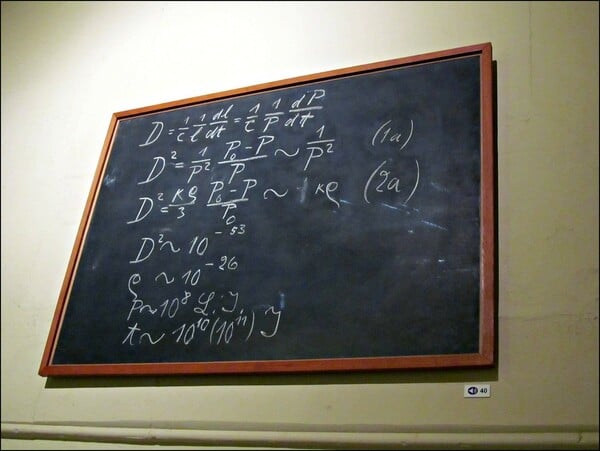 D = 1/c 1/l dl/dt = 1/c 1/P dP/dt
D² = 1/P² P₀-P/P ~ 1/P² (1a)
D² = κϱ/3 P₀-P/P₀ ~ κϱ (2a)
D² ~ 10⁻⁵³
ϱ ~ 10⁻²⁶
P ~ 10⁸ L.J.
t ~ 10¹⁰ (10¹¹) J
40